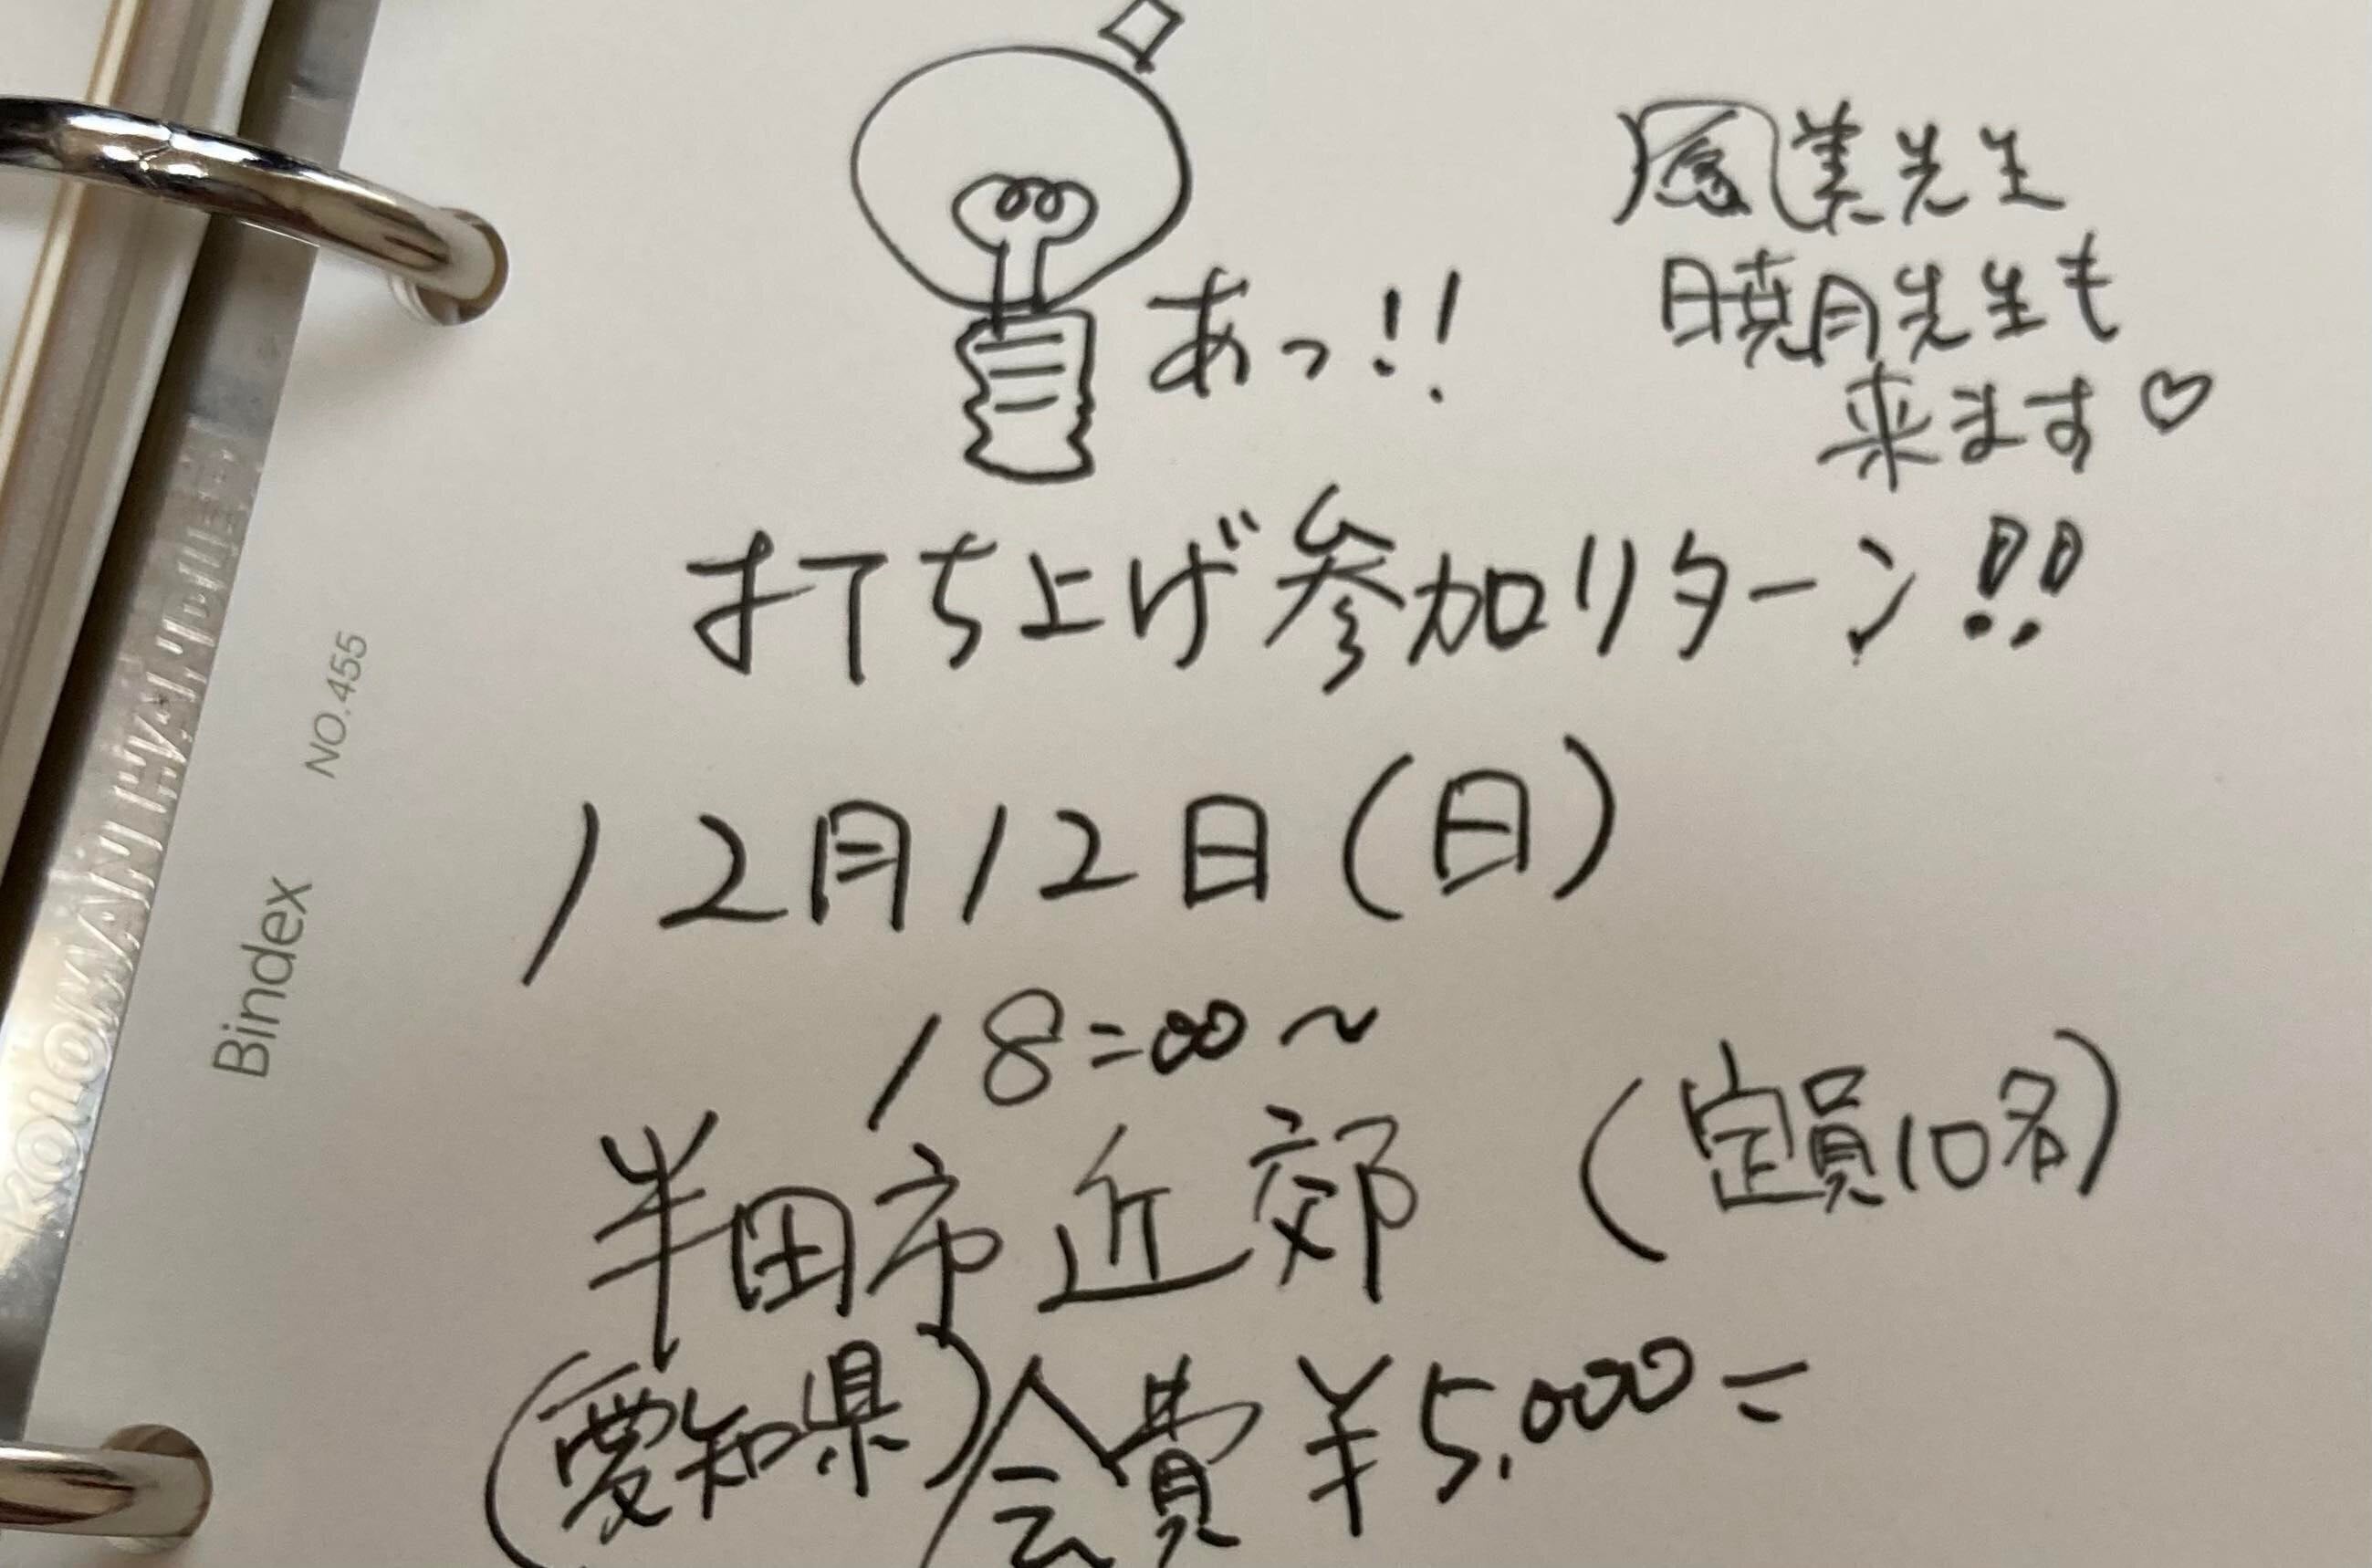 美先生
暁月先生も
来ます♡
あっ!!
打ち上げ参加リターン!!
12月12日(日)
18:00~
半田市近郊 (定員10名)
(愛知県) 会費 ¥5,000=
Bindex NO.455